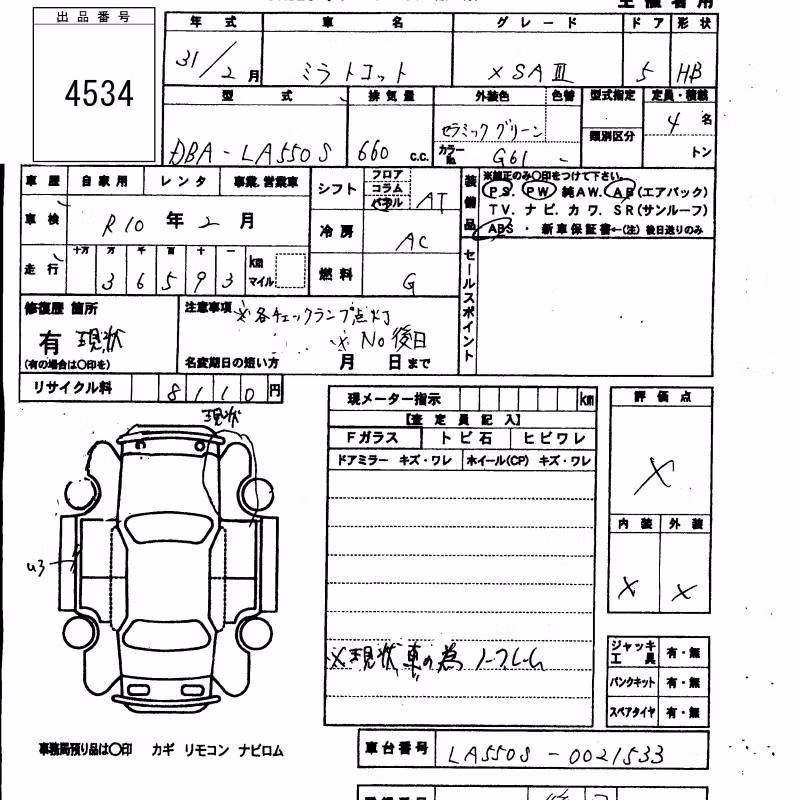 出品番号
4534
年式 車名 グレード ドア 形状
31/2月 ミラトコット X SAⅢ 5 HB
型式 排気量 外装色 色替 型式指定 定員・積載
DBA-LA550S 660 c.c. セラミックグリーン 類別区分 4名
カラーNo. G61 - トン
車歴 自家用 レンタ 事業.営業車
車検 R10年2月
走行 十万 万 千 百 十 一
36593 km マイル
シフト フロア コラム パネル AT
冷房 AC
燃料 G
装備品
※純正のみ〇印をつけて下さい。
PS. PW. 純AW. AB(エアバック)
TV. ナビ. カワ. SR(サンルーフ)
ABS ・ 新車保証書←(注)後日送りのみ
セールスポイント
修復歴 箇所
有 現状
(有の場合は〇印を)
注意事項 ※各チェックランプ点灯
※No後日
名変期日の短い方 月 日まで
リサイクル料 8110円
現状
u3
現メーター指示 km
【査定員記入】
Fガラス トビ石 ヒビワレ
ドアミラー キズ・ワレ ホイール(CP) キズ・ワレ
※現状車の為ノークレーム
評価点
X
内装 外装
X X
ジャッキ工具 有・無
パンクキット 有・無
スペアタイヤ 有・無
事務局預り品は〇印 カギ リモコン ナビロム
車台番号 LA550S-0021533